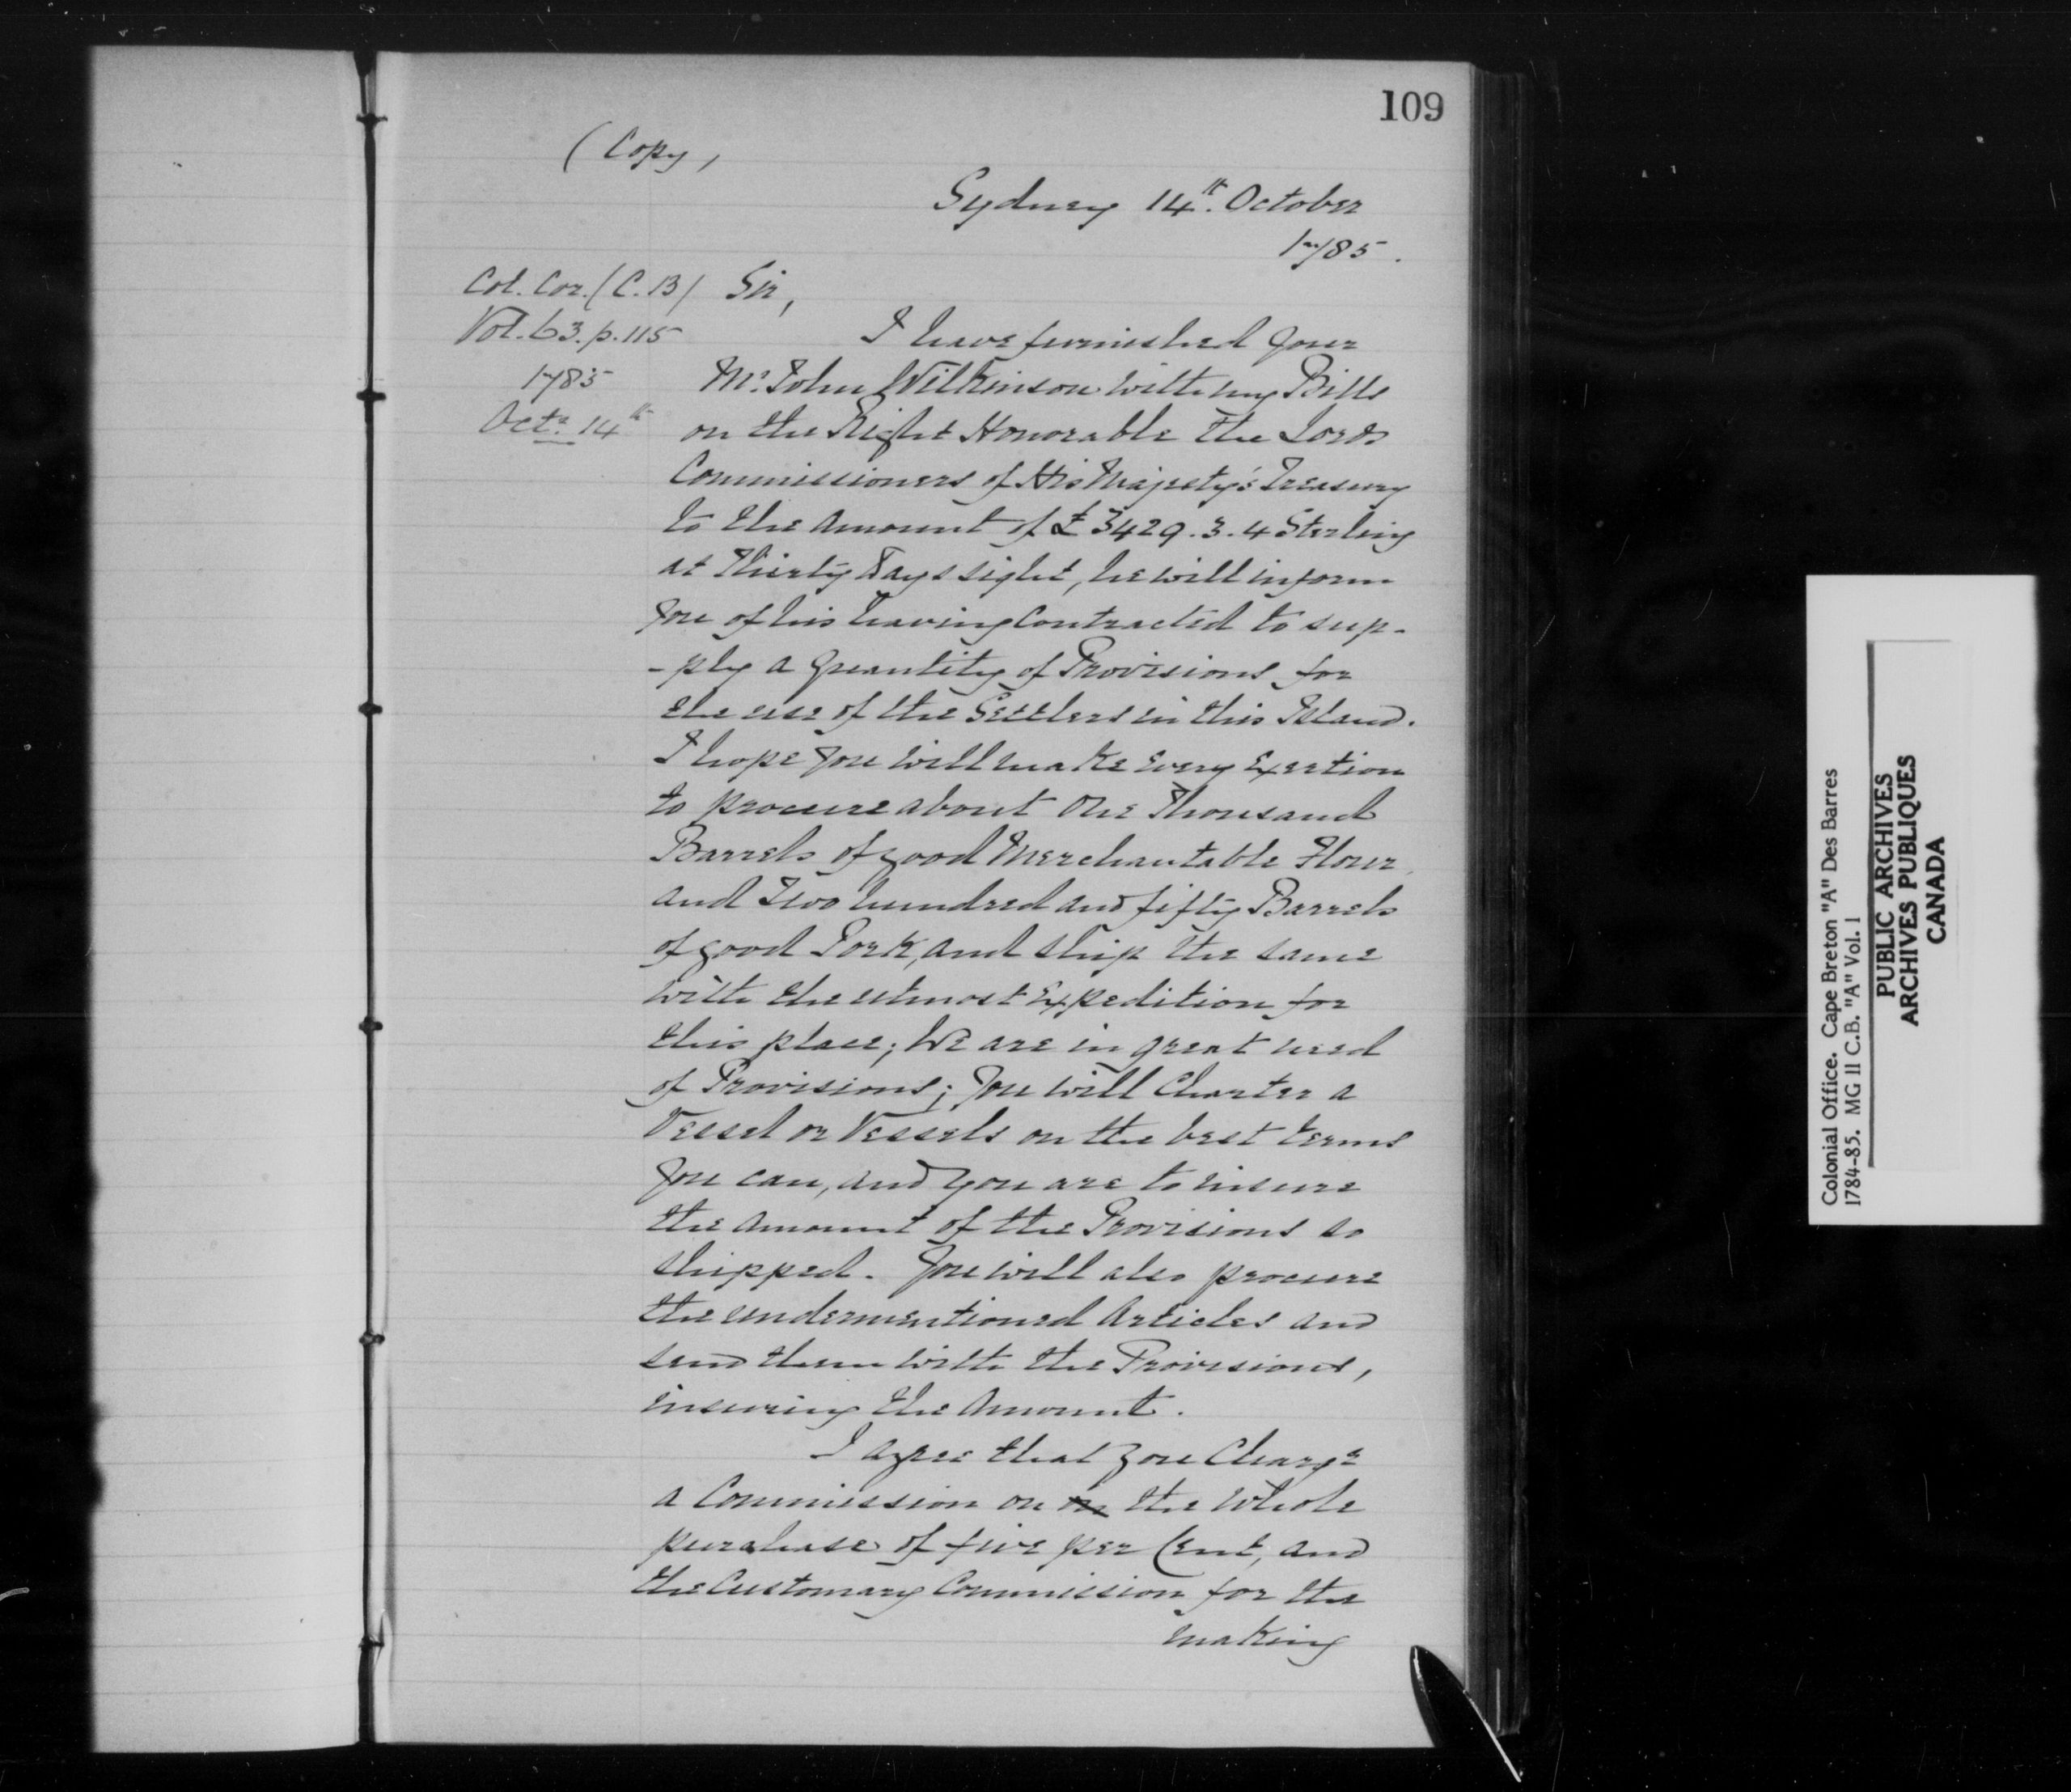 109
(Copy,
Sydney 14th. October
1785.
Col. Cor. (C.B) Sir,
Vol. 63. p. 115
1785
Octr. 14th
I have furnished your
Mr. John Wilkinson with my Bills
on the Right Honorable the Lords
Commissioners of His Majesty's Treasury
to the Amount of £3429.3.4 Sterling
at Thirty Days sight, he will inform
you of his having Contracted to sup-
-ply a Quantity of Provisions for
the use of the Settlers in this Island.
I hope you will make every Exertion
to procure about One Thousand
Barrels of good Merchantable Flour,
and Two hundred and fifty Barrels
of good Pork, and ship the same
with the utmost Expedition for
this place; We are in great need
of Provisions; You will Charter a
Vessel or Vessels on the best terms
you can, and you are to insure
the Amount of the Provisions so
shipped. You will also procure
the undermentioned Articles and
send them with the Provisions,
insuring the Amount.
I agree that you Charge
a Commission on on the Whole
purchase of five per Cent, and
the Customary Commission for the
making
Colonial Office. Cape Breton "A" Des Barres
1784-85. MG 11 C.B. "A" Vol. 1
PUBLIC ARCHIVES
ARCHIVES PUBLIQUES
CANADA